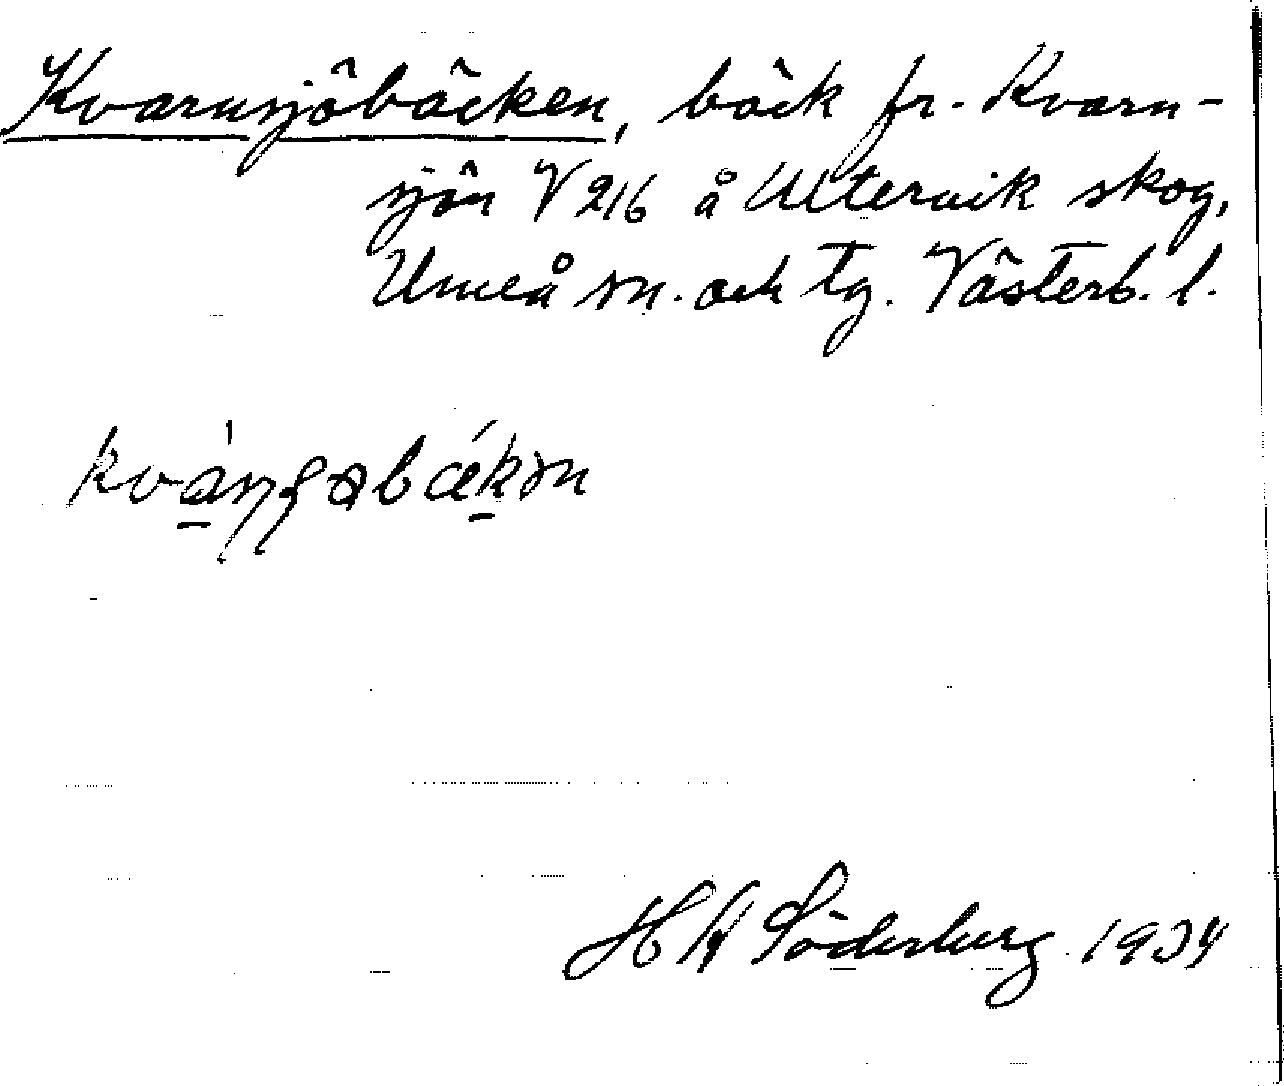 Kvarnsjöbäcken, bäck fr. Kvarn-
sjön V 216 å Ultervik skog,
Umeå sn. och tg. Västerb. l.
H H Söderberg 1934